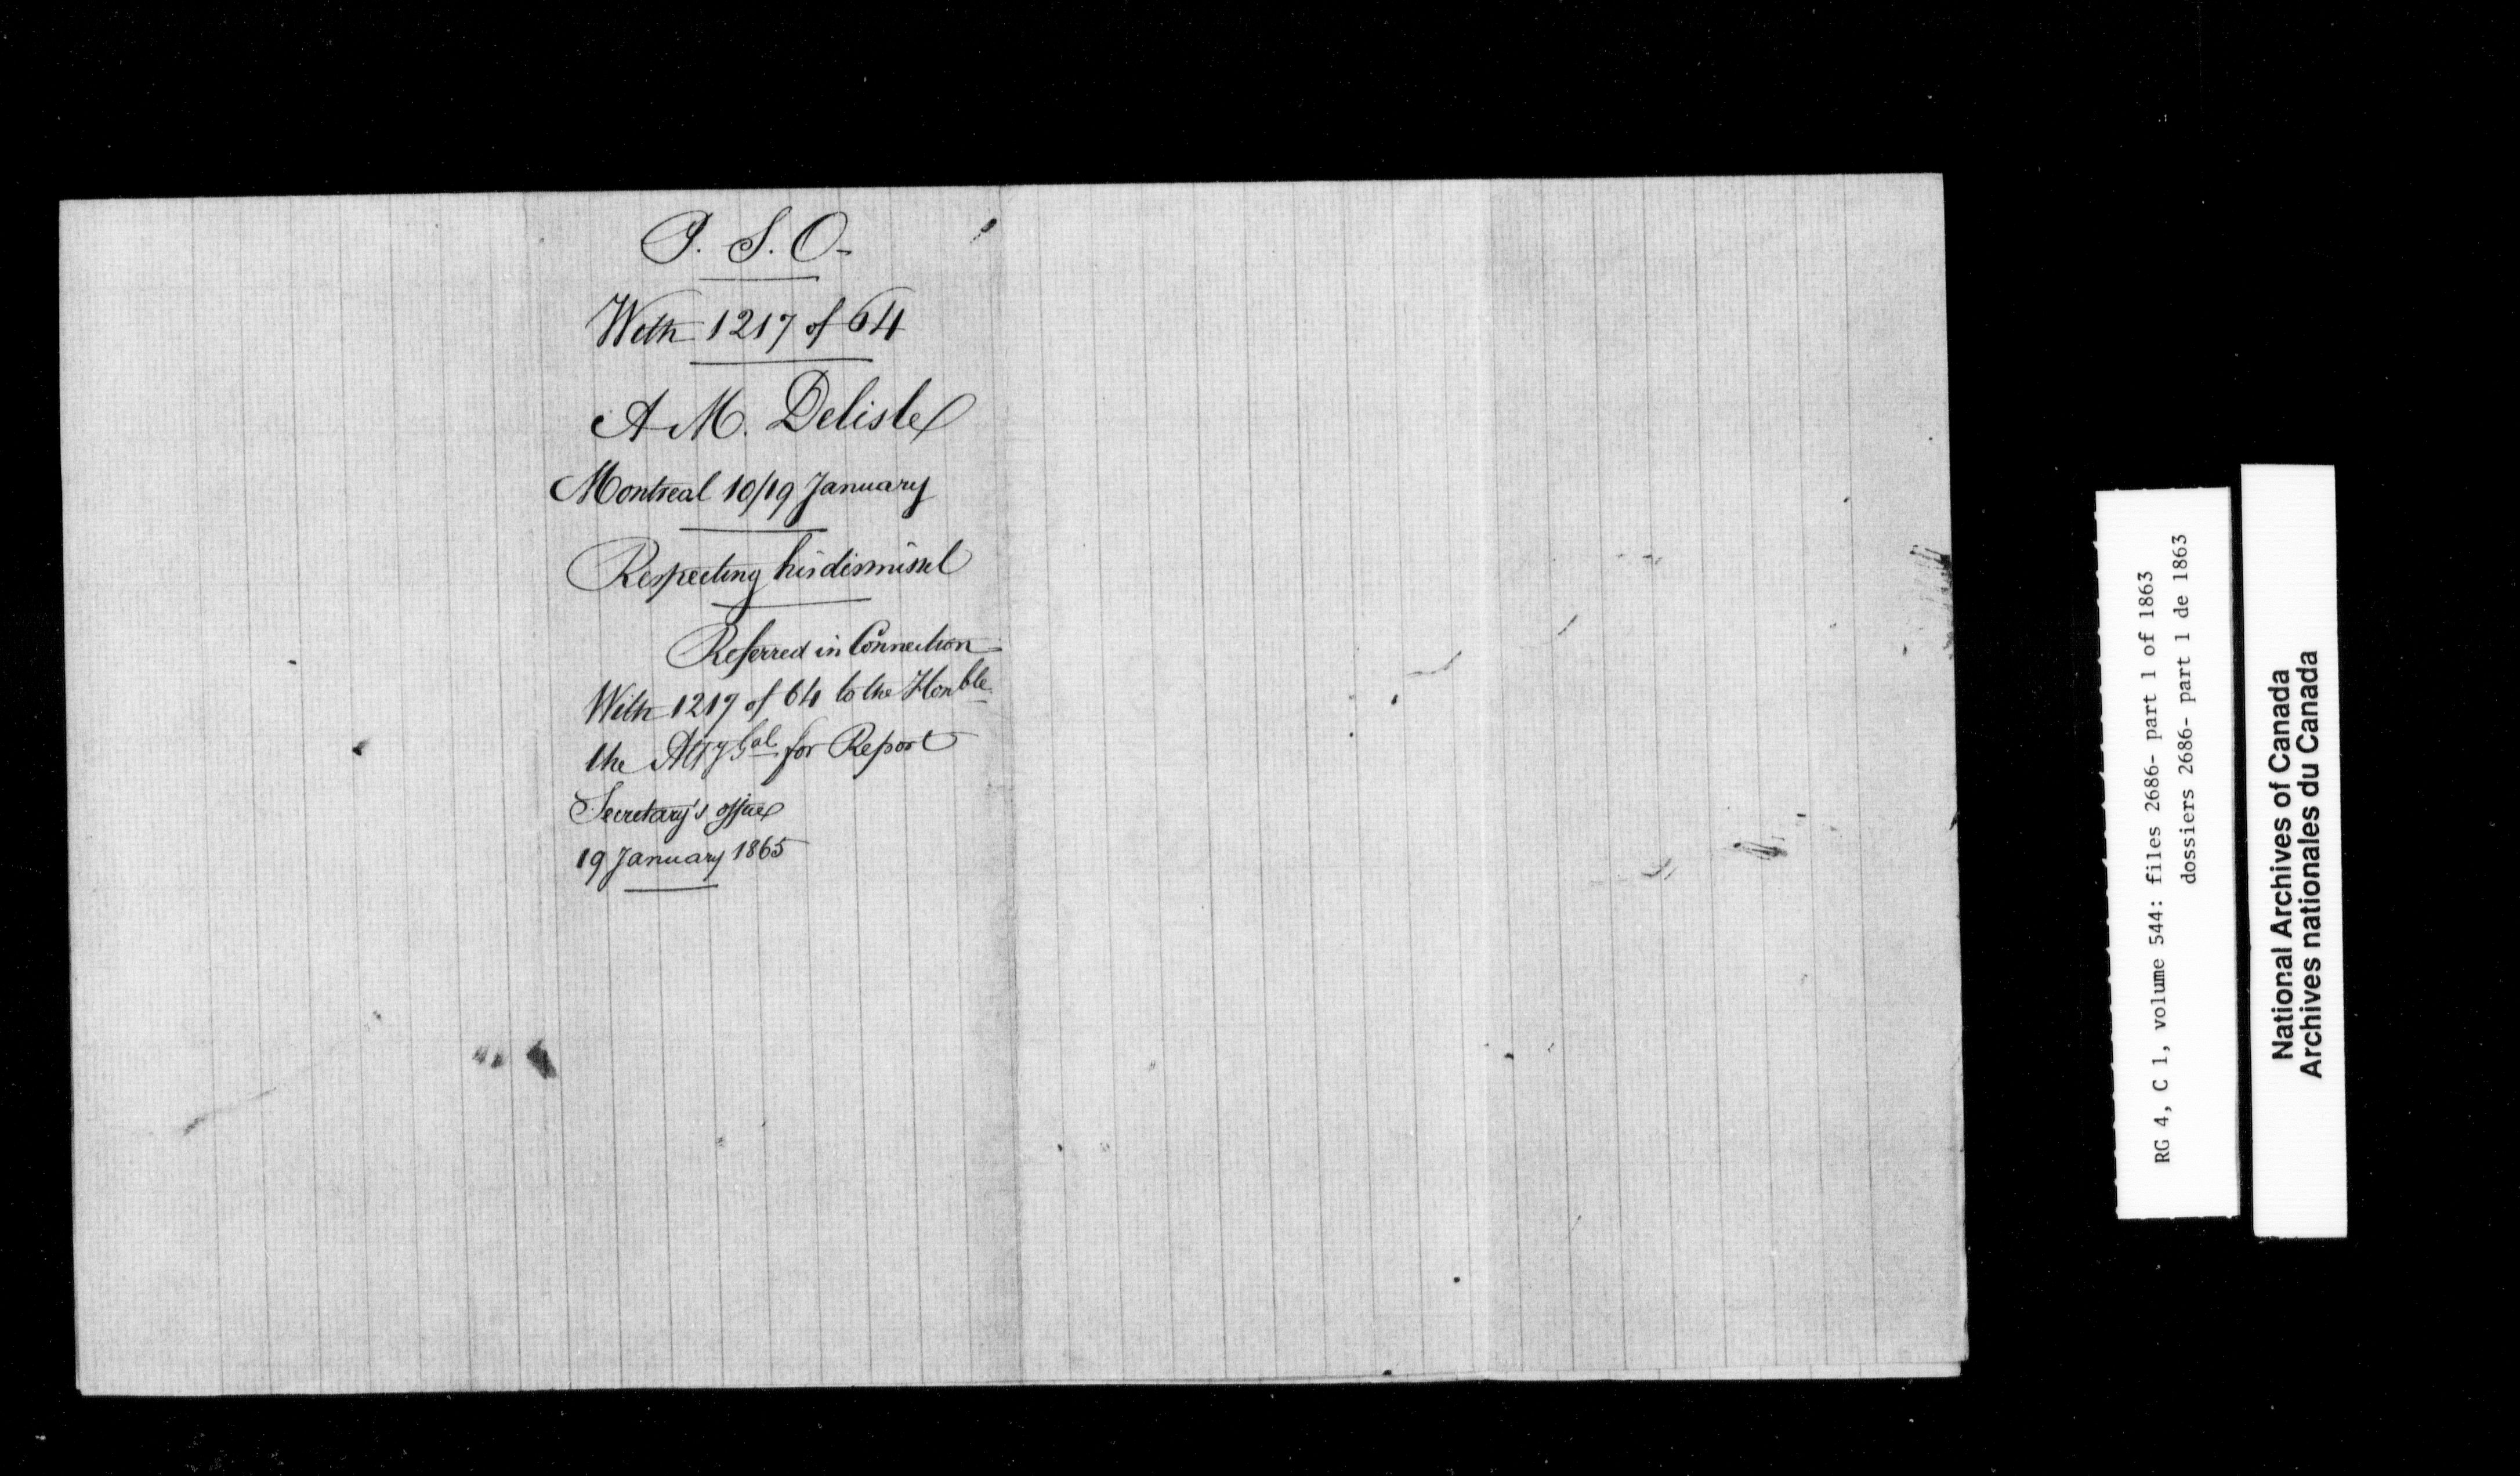 P. S. O-
With 1217 of 64
A M. Delisle
Montreal 10/19 January
Respecting his dismissal
Referred in Connection
With 1217 of 64 to the Honble
the Atty Gal for Report
Secretary's office
19 January 1865
RG 4, C 1, volume 544: files 2686- part 1 of 1863
dossiers 2686- part 1 de 1863
National Archives of Canada
Archives nationales du Canada